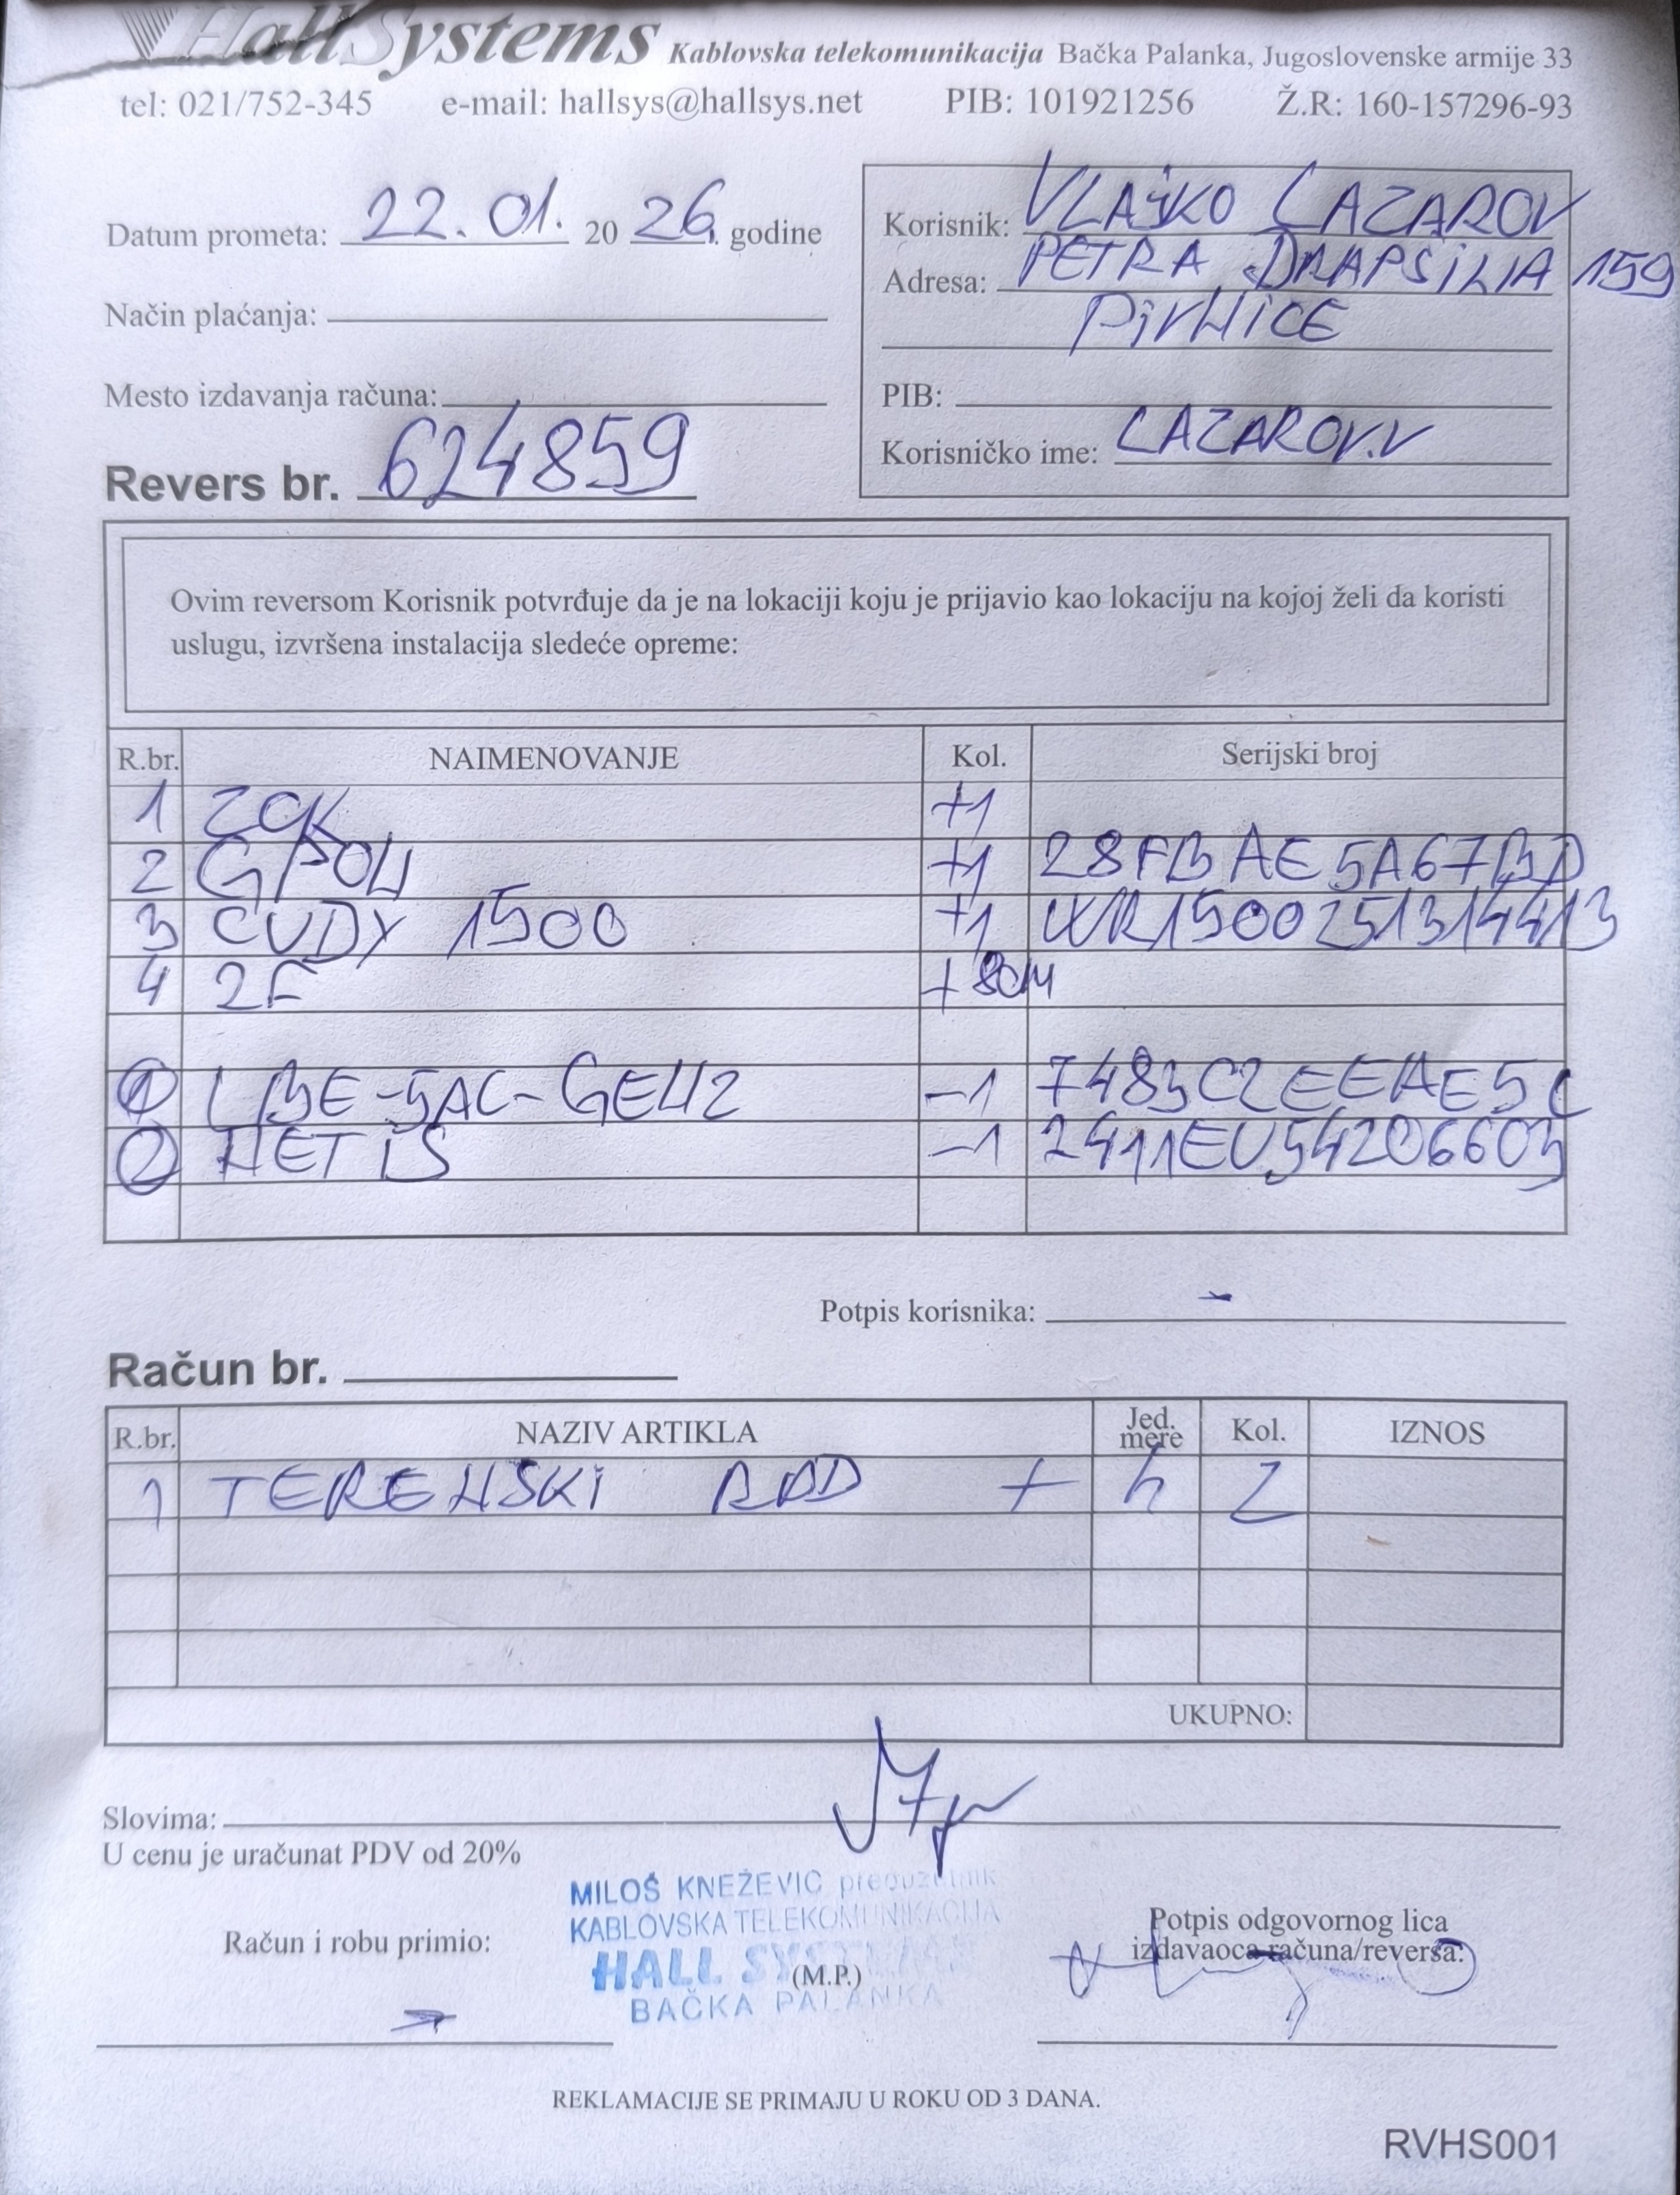 HallSystems Kablovska telekomunikacija Bačka Palanka, Jugoslovenske armije 33
tel: 021/752-345 e-mail: hallsys@hallsys.net PIB: 101921256 Ž.R: 160-157296-93
Datum prometa: 22.01. 20 26. godine
Način plaćanja:
Mesto izdavanja računa:
Revers br. 624859
Korisnik: VLAJKO LAZAROV
Adresa: PETRA DRAPŠINA 159
PIVNICE
PIB:
Korisničko ime: LAZAROV.V
Ovim reversom Korisnik potvrđuje da je na lokaciji koju je prijavio kao lokaciju na kojoj želi da koristi
uslugu, izvršena instalacija sledeće opreme:
R.br. NAIMENOVANJE Kol. Serijski broj
1 ZOK +1
2 GPON +1 28FBAE5A67BD
3 CUDY 1500 +1 WR1500251314413
4 2F
1 LBE-5AC-GEN2 -1 7483C2EEAE5C
2 NETIS -1 2411EU54206603
Potpis korisnika: -
Račun br.
R.br. NAZIV ARTIKLA Jed. mere Kol. IZNOS
1 TERENSKI RAD + h 2
UKUPNO:
Slovima:
U cenu je uračunat PDV od 20%
MILOŠ KNEŽEVIĆ preduzetnik
KABLOVSKA TELEKOMUNIKACIJA
HALL SYSTEMS
BAČKA PALANKA
Račun i robu primio:
(M.P.)
Potpis odgovornog lica
izdavaoca računa/reversa:
REKLAMACIJE SE PRIMAJU U ROKU OD 3 DANA.
RVHS001